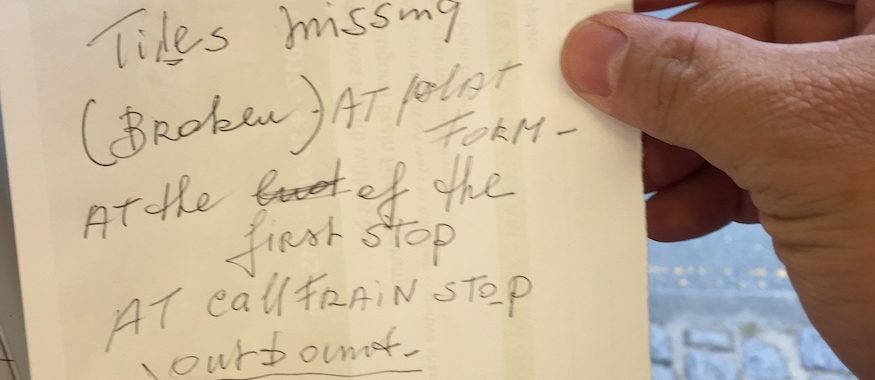 Tiles missing
(BRoken) AT plAT
FORM -
AT the of the
fiRst STOP
AT callTRAiN STOP
outbount -